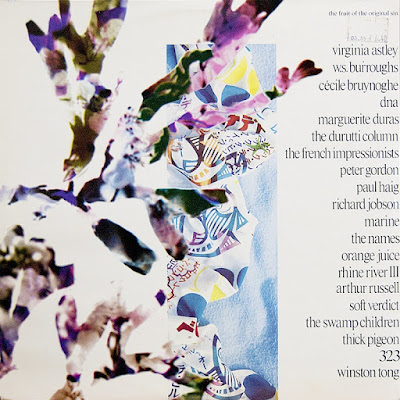 the fruit of the original sin
virginia astley
w.s. burroughs
cécile bruynoghe
dna
marguerite duras
the durutti column
the french impressionists
peter gordon
paul haig
richard jobson
marine
the names
orange juice
rhine river III
arthur russell
soft verdict
the swamp children
thick pigeon
323
winston tong